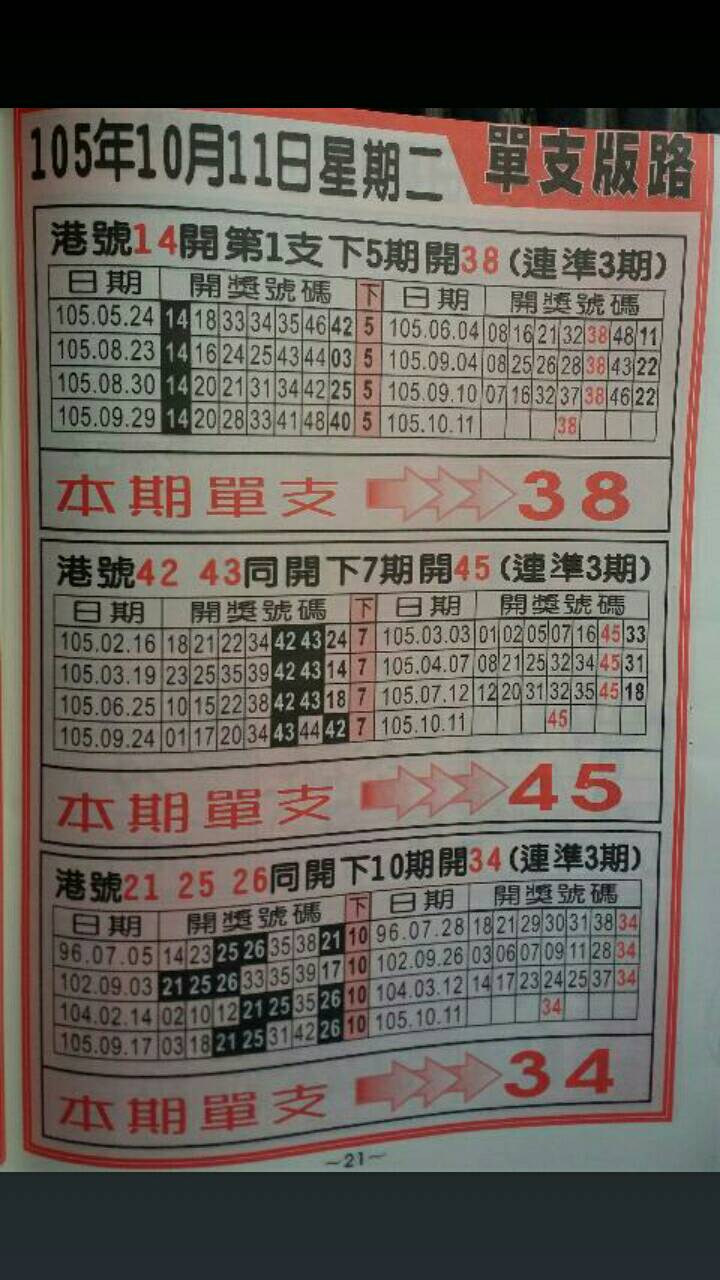 105年10月11日星期二 單支版路
港號14開第1支下5期開38(連準3期)
日期 開獎號碼 下 日期 開獎號碼
105.05.24 14 18 33 34 35 46 42 5 105.06.04 08 16 21 32 38 48 11
105.08.23 14 16 24 25 43 44 03 5 105.09.04 08 25 26 28 38 43 22
105.08.30 14 20 21 31 34 42 25 5 105.09.10 07 16 32 37 38 46 22
105.09.29 14 20 28 33 41 48 40 5 105.10.11 38
本期單支 38
港號42 43同開下7期開45(連準3期)
日期 開獎號碼 下 日期 開獎號碼
105.02.16 18 21 22 34 42 43 24 7 105.03.03 01 02 05 07 16 45 33
105.03.19 23 25 35 39 42 43 14 7 105.04.07 08 21 25 32 34 45 31
105.06.25 10 15 22 38 42 43 18 7 105.07.12 12 20 31 32 35 45 18
105.09.24 01 17 20 34 43 44 42 7 105.10.11 45
本期單支 45
港號21 25 26同開下10期開34(連準3期)
日期 開獎號碼 下 日期 開獎號碼
96.07.05 14 23 25 26 35 38 21 10 96.07.28 18 21 29 30 31 38 34
102.09.03 21 25 26 33 35 39 17 10 102.09.26 03 06 07 09 11 28 34
104.02.14 02 10 12 21 25 35 26 10 104.03.12 14 17 23 24 25 37 34
105.09.17 03 18 21 25 31 42 26 10 105.10.11 34
本期單支 34
~21~